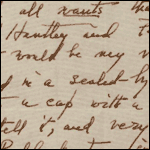 all wants the
Huntley and t
would be my
in a sealed by
a cap with a
tell it, and very